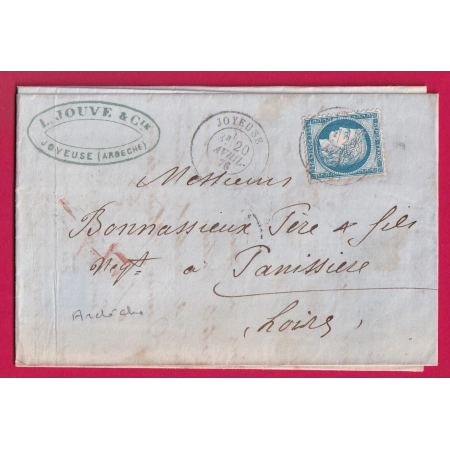 L. JOUVE & CIE
JOYEUSE (ARDÈCHE)
JOYEUSE
20
AVRIL
Messieurs
Bonnassieux Père & fils
Negt. à Panissière
Loire
Ardèche